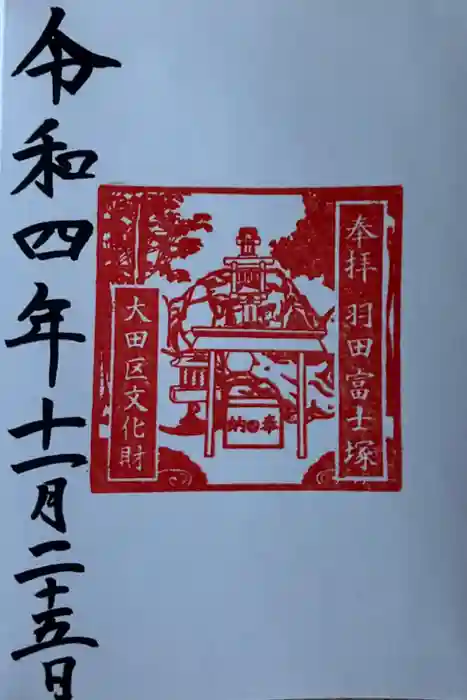 奉拝 羽田富士塚
大田区文化財
奉納
令和四年十一月二十五日